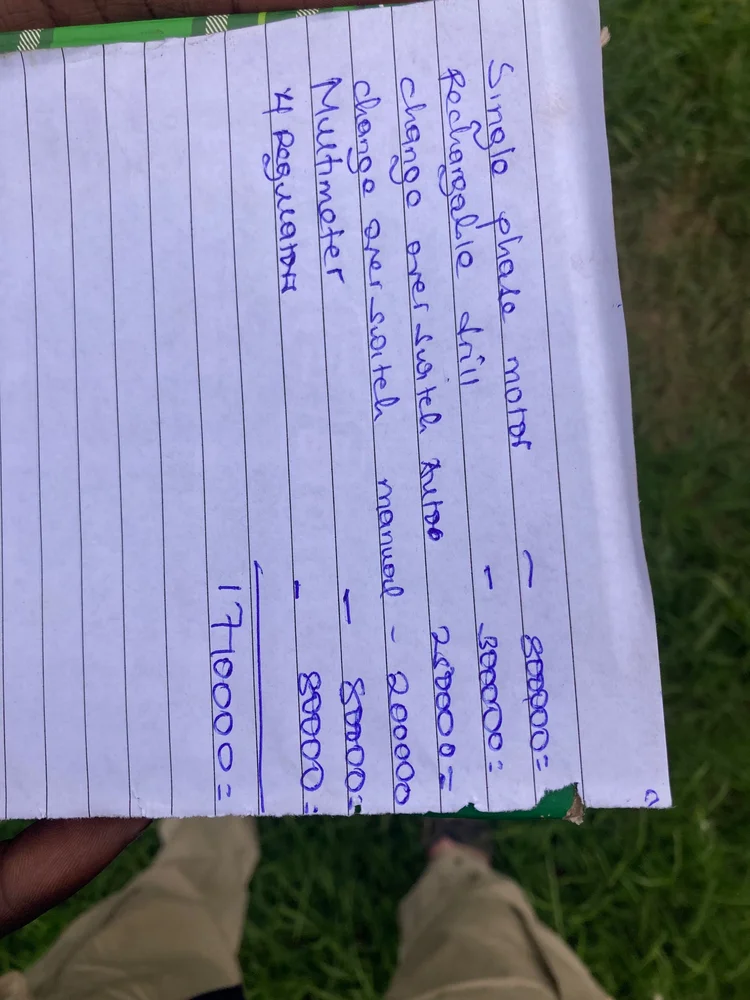 Single phase motor - 800000=
Rechargable drill - 300000=
change over switch Autoo 250000=
change over switch manual - 200000
Multimeter - 80000=
4 Regulators - 80000=
1710000=